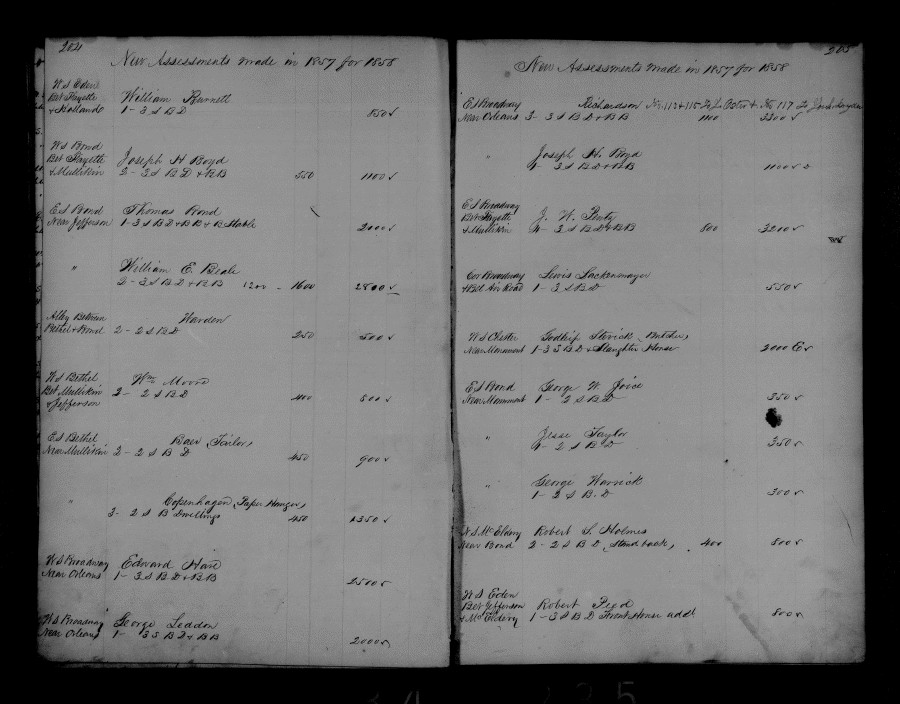 204
New Assessments made in 1857 for 1858
W S Eden
Bet Fayette William Barnett
& Hollands 1 - 3 S B D 850
W S Bond
Bet Fayette Joseph H Boyd
& Mullikin 2 - 3 S B D & B B 550 1100
E S Bond Thomas Bond
Near Jefferson 1 - 3 S B D & B B & B Stable 2000
" William E. Beale
2 - 3 S B D & B B 1200 - 1600 2800
Alley Between Harden
Bethel & Bond 2 - 2 S B D 250 500
W S Bethel Wm Moore
Bet Mullikin 2 - 2 S B D 400 800
& Jefferson
E S Bethel Baer (Tailor)
Near Mullikin 2 - 2 S B D 450 900
" Copenhagen (Paper Hanger)
3 - 2 S B Dwellings 450 1350
W S Broadway Edward Hare
Near Orleans 1 - 3 S B D & B B 2500
W S Broadway George Leddon
Near Orleans 1 - 3 S B D & B B 2000
205
New Assessments made in 1857 for 1858
E S Broadway Richardson No. 113 & 115 To & No 117 To
Near Orleans 3 - 3 S B D & B B 1100 3300
" Joseph H. Boyd
1 - 3 S B D & B B 1100
E S Broadway
Bet Fayette J. W.
& Mullikin 4 - 3 S B D & B B 800 3200
Cor Broadway Lewis
& Bel Air Road 1 - 3 S B D 550
W S Chester (Butcher)
Near Monument 1 - 3 S B D & Slaughter House 2000
E S Bond George W. Joice
Near Monument 1 - 2 S B D 350
" Jesse Taylor
1 - 2 S B D 350
" George Warrick
1 - 2 S B D 300
N S McElderry Robert S. Holmes
Near Bond 2 - 2 S B D (Stand back) 400 800
W S Eden
Bet Jefferson Robert Reed
& McElderry 1 - 3 S B D Front House addl 800